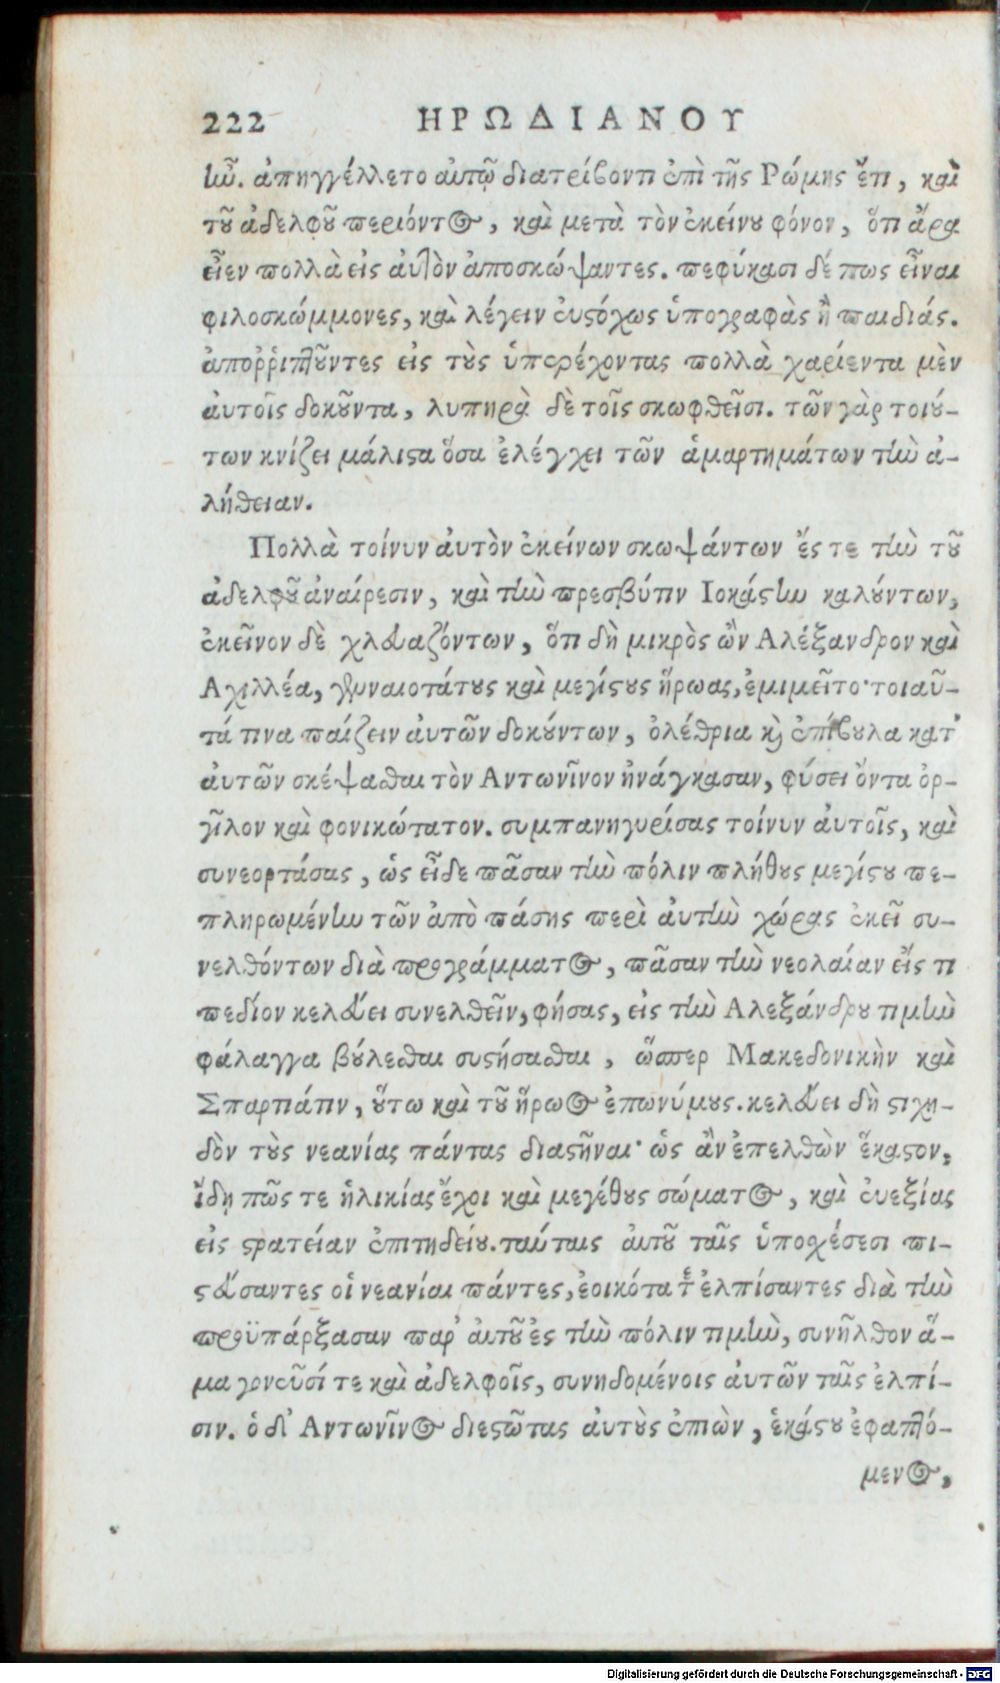 222 ΗΡΩΔΙΑΝΟΥ
ἦν. ἀπηγγέλλετο αὐτῷ διατρίβοντι ἐπὶ τῆς Ρώμης ἔτι, καὶ
τοῦ ἀδελφοῦ περιόντος, καὶ μετὰ τὸν ἐκείνου φόνον, ὅτι ἄρα
εἶεν πολλὰ εἰς αὐτὸν ἀποσκώψαντες. πεφύκασι δέ πως εἶναι
φιλοσκώμμονες, καὶ λέγειν εὐστόχως ὑπογραφὰς ἢ παιδιάς.
ἀποῤῥιπτοῦντες εἰς τοὺς ὑπερέχοντας πολλὰ χαρίεντα μὲν
αὐτοῖς δοκοῦντα, λυπηρὰ δὲ τοῖς σκωφθεῖσι. τῶν γὰρ τοιού-
των κνίζει μάλιστα ὅσα ἐλέγχει τῶν ἁμαρτημάτων τὴν ἀ-
λήθειαν.
Πολλὰ τοίνυν αὐτὸν ἐκείνων σκωψάντων ἔς τε τὴν τοῦ
ἀδελφοῦ ἀναίρεσιν, καὶ τὴν πρεσβύτιν Ιοκάστην καλούντων,
ἐκεῖνον δὲ χλευαζόντων, ὅτι δὴ μικρὸς ὢν Αλέξανδρον καὶ
Αχιλλέα, γενναιοτάτους καὶ μεγίστους ἥρωας, ἐμιμεῖτο· τοιαῦ-
τά τινα παίζειν αὐτῶν δοκούντων, ὀλέθρια καὶ ἐπίβουλα κατ'
αὐτῶν σκέψασθαι τὸν Αντωνῖνον ἠνάγκασαν, φύσει ὄντα ὀρ-
γῖλον καὶ φονικώτατον. συμπανηγυρίσας τοίνυν αὐτοῖς, καὶ
συνεορτάσας, ὡς εἶδε πᾶσαν τὴν πόλιν πλήθους μεγίστου πε-
πληρωμένην τῶν ἀπὸ πάσης περὶ αὐτὴν χώρας ἐκεῖ συ-
νελθόντων διὰ προγράμματος, πᾶσαν τὴν νεολαίαν εἴς τι
πεδίον κελεύει συνελθεῖν, φήσας, εἰς τὴν Αλεξάνδρου τιμὴν
φάλαγγα βούλεσθαι συστήσασθαι, ὥσπερ Μακεδονικὴν καὶ
Σπαρτιάτιν, οὕτω καὶ τοῦ ἥρωος ἐπωνύμους. κελεύει δὴ στιχη-
δὸν τοὺς νεανίας πάντας διαστῆναι· ὡς ἂν ἐπελθὼν ἕκαστον,
ἴδῃ πῶς τε ἡλικίας ἔχοι καὶ μεγέθους σώματος, καὶ εὐεξίας
εἰς στρατείαν ἐπιτηδείου. ταύταις αὐτοῦ ταῖς ὑποσχέσεσι πι-
στεύσαντες οἱ νεανίαι πάντες, ἐοικότα τε ἐλπίσαντες διὰ τὴν
προϋπάρξασαν παρ' αὐτοῦ ἐς τὴν πόλιν τιμὴν, συνῆλθον ἅ-
μα γονεῦσί τε καὶ ἀδελφοῖς, συνηδομένοις αὐτῶν ταῖς ἐλπί-
σιν. ὁ δ' Αντωνῖνος διεστῶτας αὐτοὺς ἐπιὼν, ἑκάστου ἐφαπτό-
μενος,
Digitalisierung gefördert durch die Deutsche Forschungsgemeinschaft - DFG